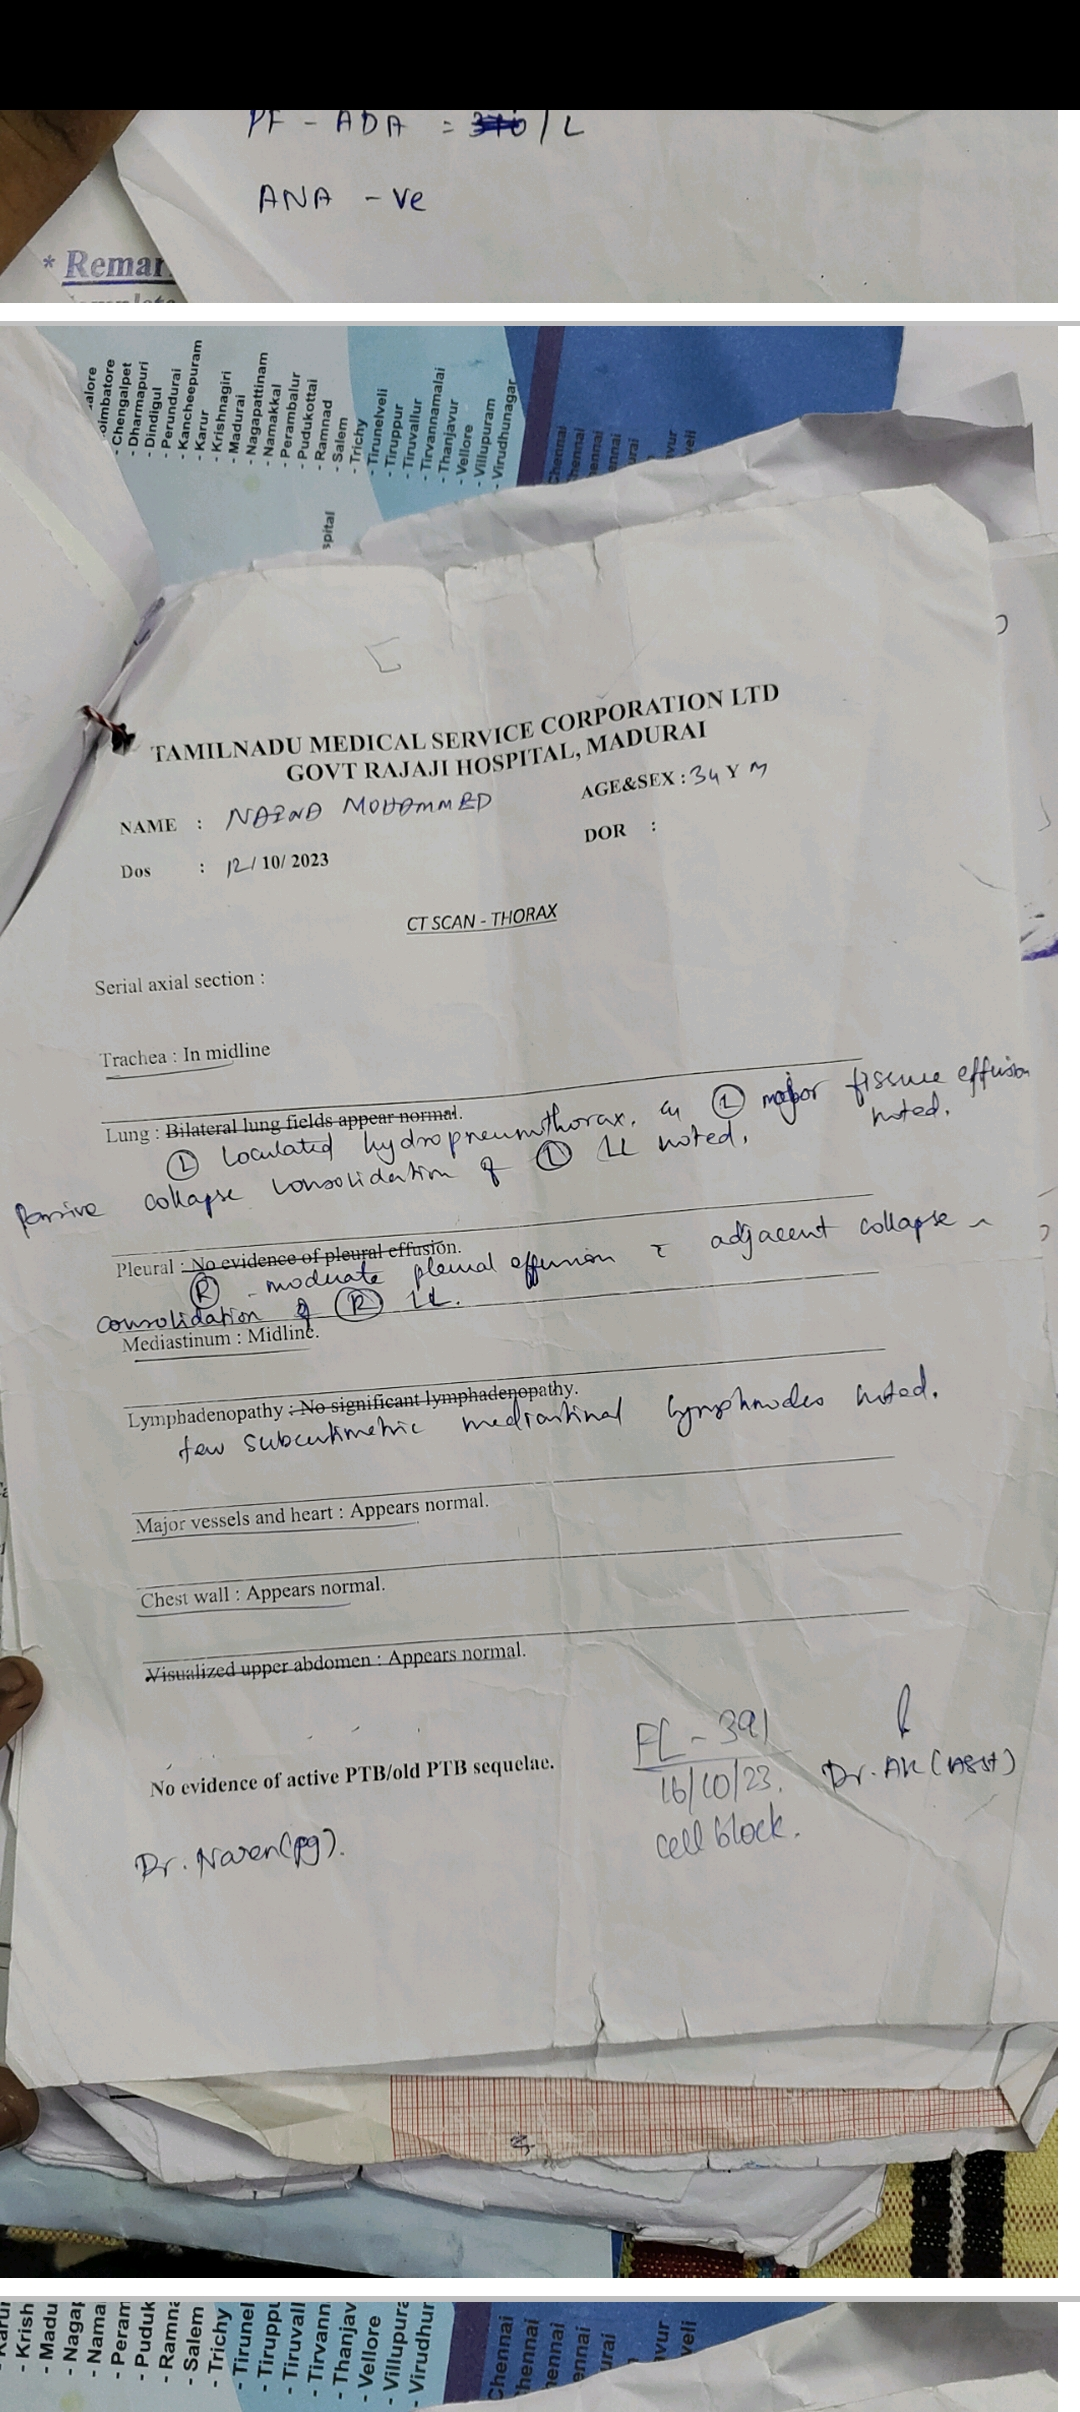 PF - ADA = / L
ANA - ve
* Remar
- Chengalpet
- Dharmapuri
- Dindigul
- Perundurai
- Kancheepuram
- Karur
- Krishnagiri
- Madurai
- Nagapattinam
- Namakkal
- Perambalur
- Pudukottai
- Ramnad
- Salem
- Trichy
- Tirunelveli
- Tiruppur
- Tiruvallur
- Tirvannamalai
- Thanjavur
- Vellore
- Villupuram
- Virudhunagar
spital
Chennai
hennai
ennai
ennai
urai
avur
veli
TAMILNADU MEDICAL SERVICE CORPORATION LTD
GOVT RAJAJI HOSPITAL, MADURAI
NAME : NAINA MOHAMMED AGE&SEX : 34 Y M
Dos : 12/ 10/ 2023 DOR :
CT SCAN - THORAX
Serial axial section :
Trachea : In midline
Lung : Bilateral lung fields appear normal.
(L) Loculated hydropneumothorax. (L) major fissure effusion noted.
Passive collapse consolidation of (L) LL noted.
Pleural : No evidence of pleural effusion.
(R) - moderate pleural effusion c adjacent collapse -
consolidation of (R) LL.
Mediastinum : Midline.
Lymphadenopathy : No significant lymphadenopathy.
few subcentimetric mediastinal lymphnodes noted.
Major vessels and heart : Appears normal.
Chest wall : Appears normal.
Visualized upper abdomen : Appears normal.
No evidence of active PTB/old PTB sequelae.
FL - 391
16/10/23.
cell block.
Dr. AK (Asst)
Dr. Naren (pg).
- Krish
- Madu
- Nagap
- Nama
- Peram
- Puduk
- Ramna
- Salem
- Trichy
- Tirunel
- Tiruppu
- Tiruvall
- Tirvann
- Thanjav
- Vellore
- Villupura
- Virudhur
Chennai
hennai
ennai
ennai
urai
vur
veli